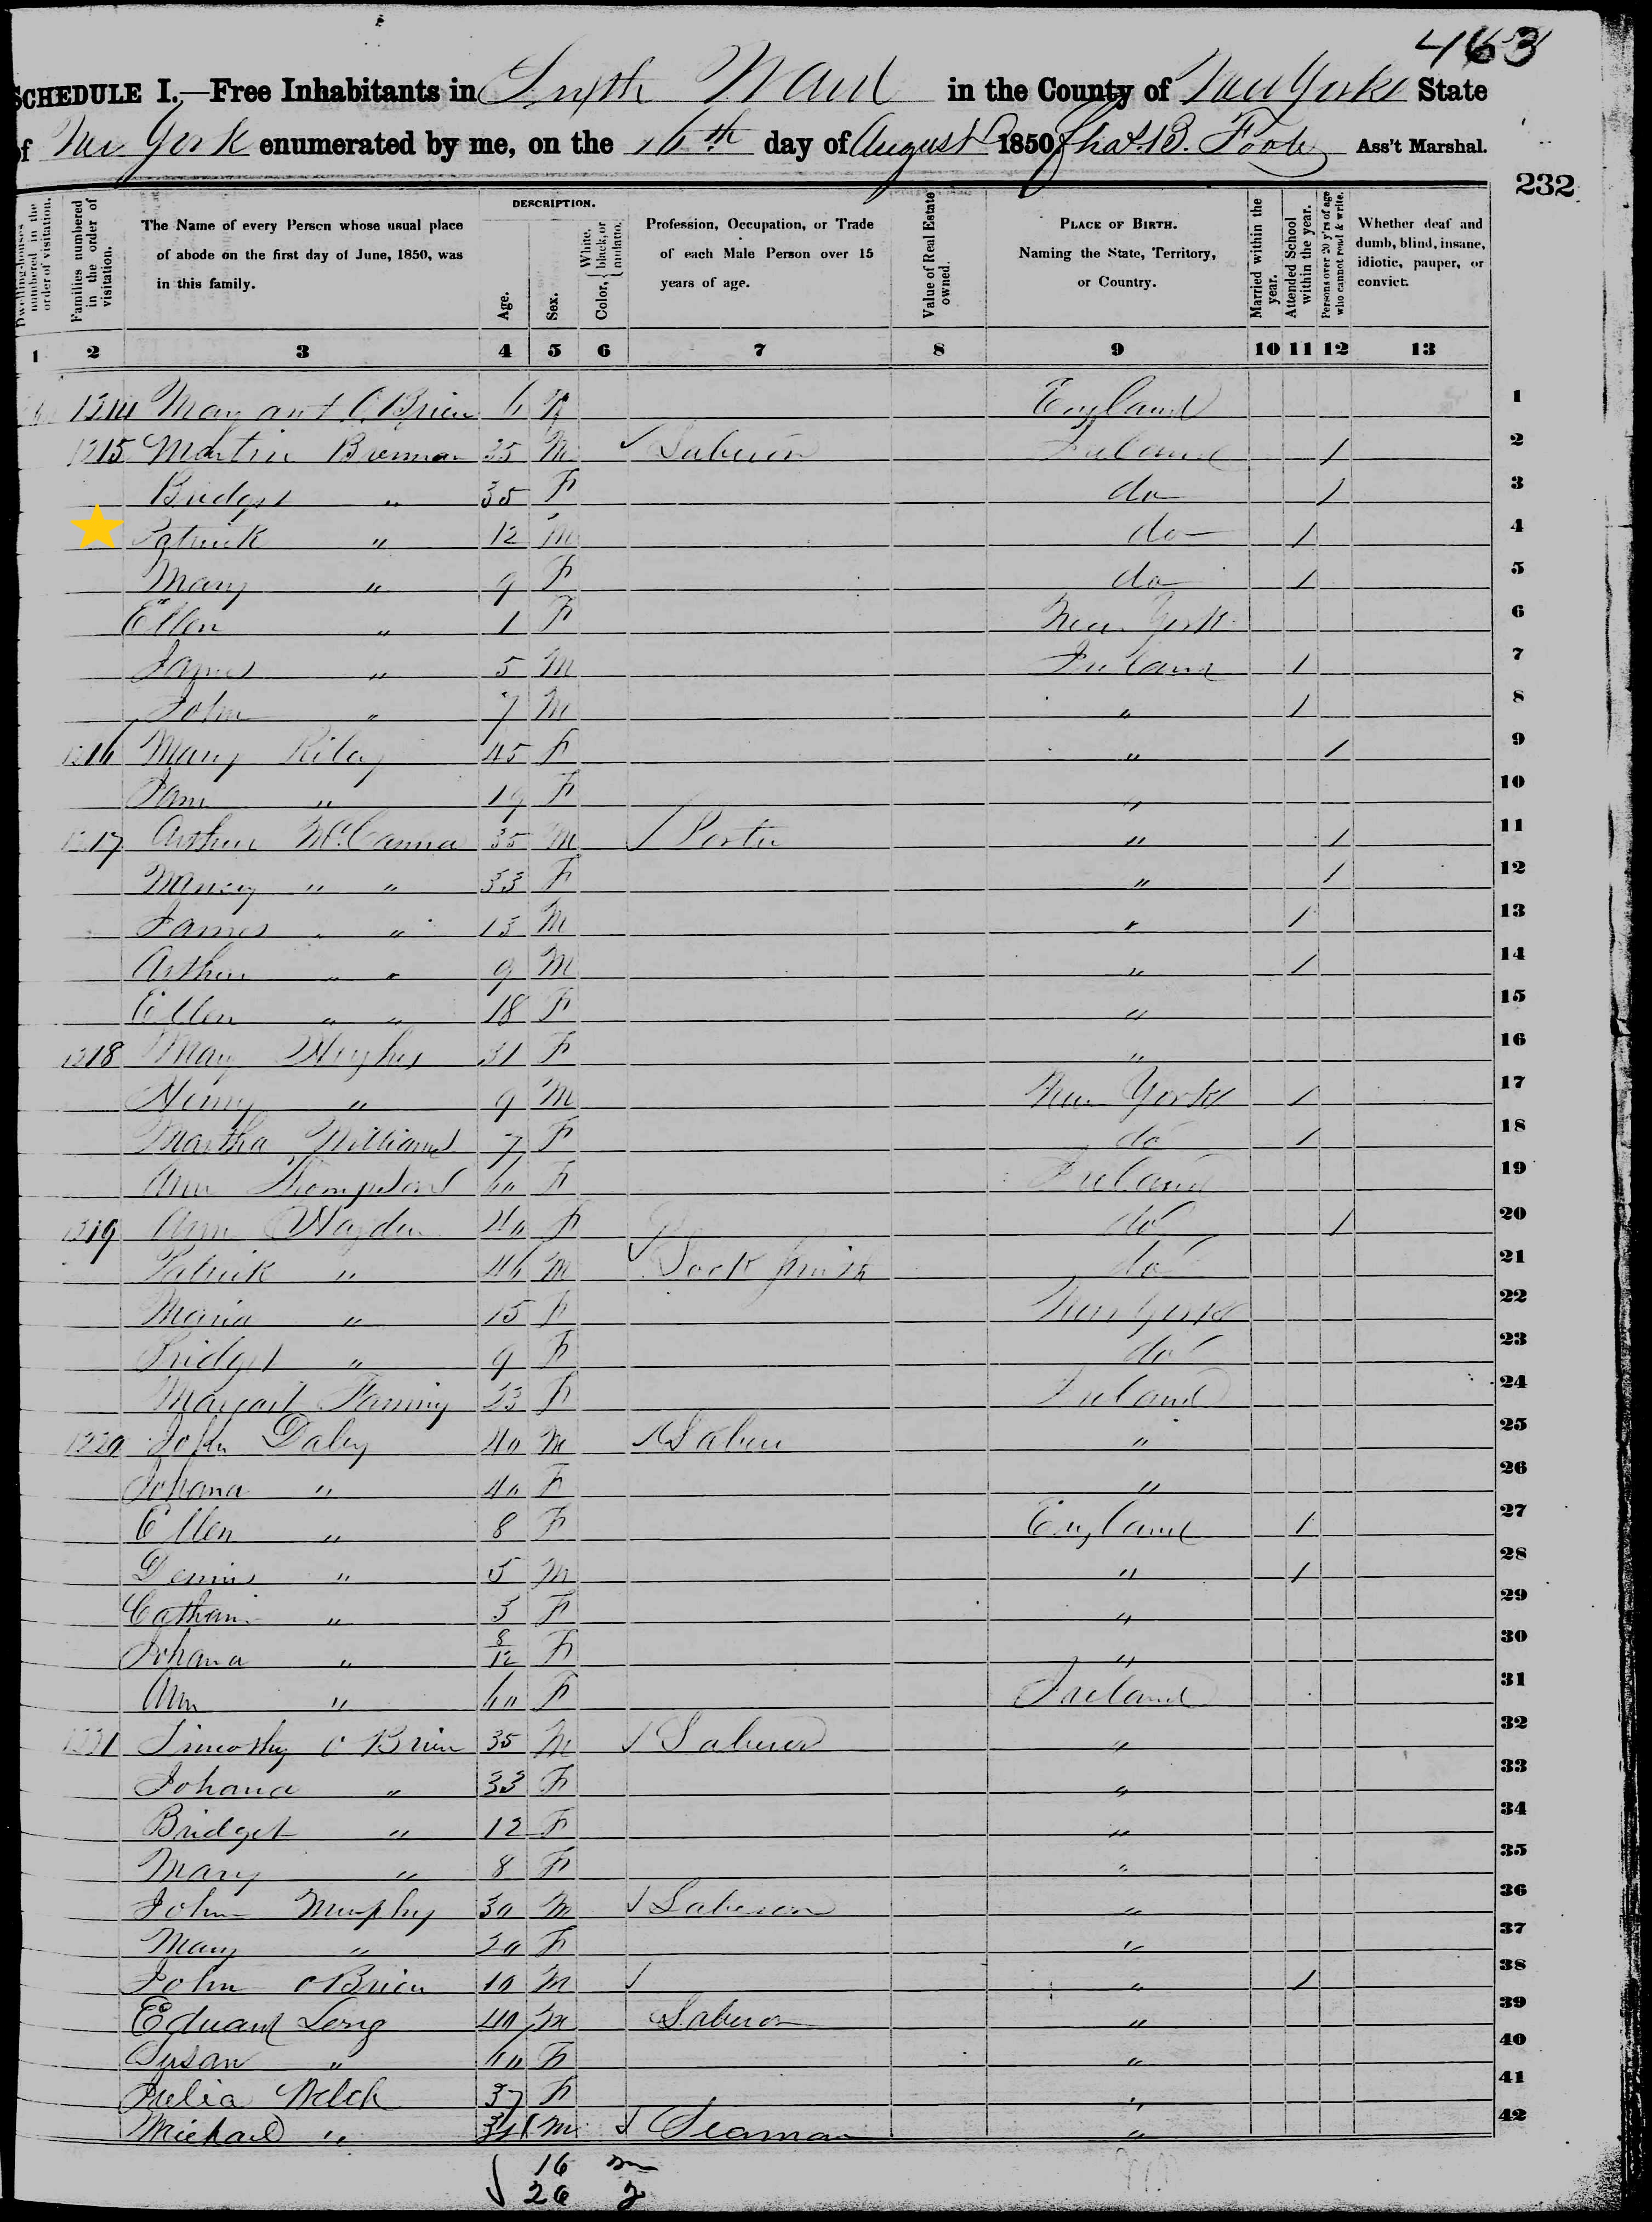 463
SCHEDULE I.—Free Inhabitants in Sixth Ward in the County of New York State
of New York enumerated by me, on the 16th day of August 1850 Chas. B. Foote Ass't Marshal.
232
Dwelling-houses numbered in the order of visitation.
Families numbered in the order of visitation.
The Name of every Person whose usual place of abode on the first day of June, 1850, was in this family.
DESCRIPTION.
Age.
Sex.
Color, White, black, or mulatto.
Profession, Occupation, or Trade of each Male Person over 15 years of age.
Value of Real Estate owned.
PLACE OF BIRTH. Naming the State, Territory, or Country.
Married within the year.
Attended School within the year.
Persons over 20 y'rs of age who cannot read & write.
Whether deaf and dumb, blind, insane, idiotic, pauper, or convict.
1 2 3 4 5 6 7 8 9 10 11 12 13
1214 O'Brien 6 England 1
1215 Martin Brennan 35 M ✓ Ireland / 2
Bridget " 35 F do / 3
Patrick " 12 M do / 4
Mary " 9 F do / 5
Ellen " 1 F New York 6
James " 5 M Ireland / 7
John " 7 M " / 8
1216 Mary Riley 45 F " / 9
Jane " 19 F " 10
1217 Arthur McCanna 35 M ✓ Porter " / 11
Nancy " " 33 F " / 12
James " " 13 M " / 13
Arthur " " 9 M " / 14
Ellen " " 18 F " 15
1218 Mary Hughes 31 F " 16
Henry " 9 M New York / 17
Martha Williams 7 F do / 18
Ann Thompson 60 F Ireland 19
1219 Ann Hayden 40 F do / 20
Patrick " 46 M ✓ Lock Smith do 21
Maria " 15 F New York 22
Bridget " 9 F do 23
Margaret Faning F Ireland 24
1220 John Daley 40 M ✓ " 25
Johana " 40 F " 26
Ellen " 8 F England / 27
Dennis " 5 M " / 28
" 3 F " 29
Johana " 8/12 F " 30
Ann " 60 F Ireland 31
1221 Timothy O Brien 35 M ✓ Laborer " 32
Johana " 33 F " 33
Bridget " 12 F " 34
Mary " 8 F " 35
John Murphy 30 M ✓ Laborer " 36
Mary " 30 F " 37
John O Brien 10 M ✓ " / 38
Edward 40 M Laborer " 39
Susan " 40 F " 40
Julia Welch 37 F " 41
Michael " M ✓ Seaman " 42
✓ 16 m
26 f